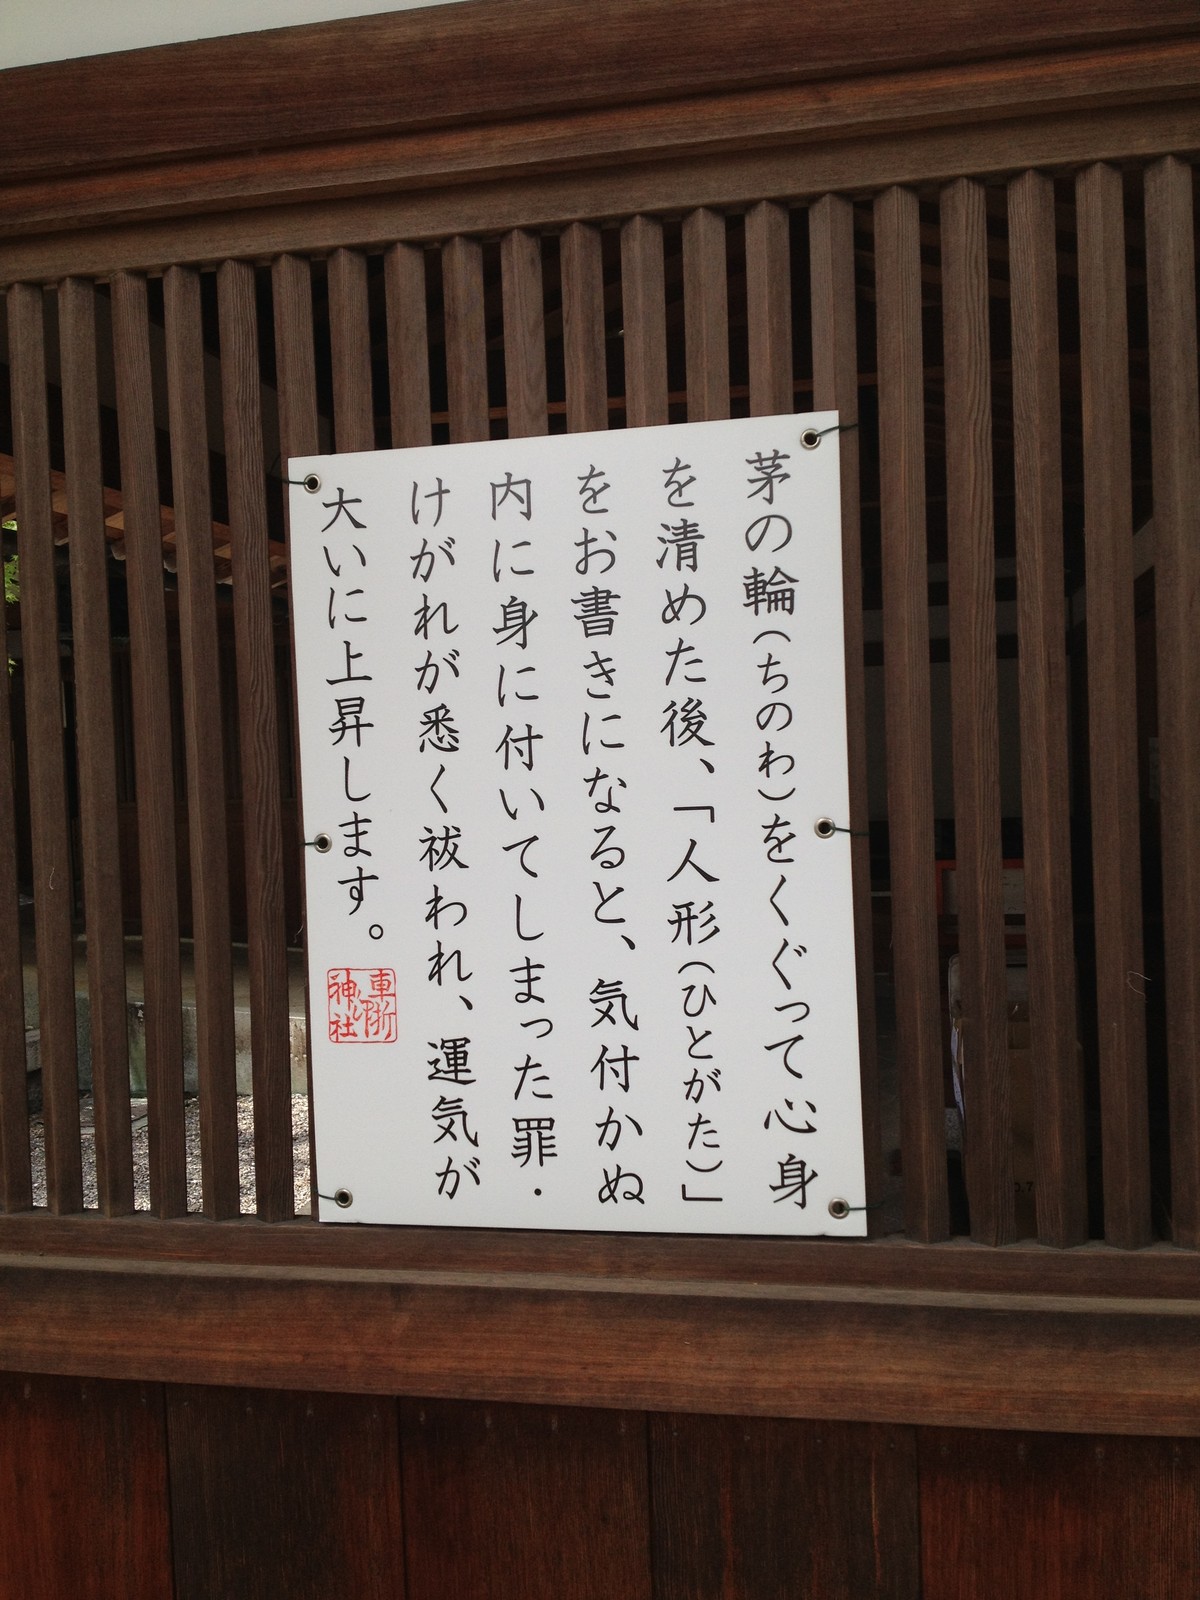 茅の輪(ちのわ)をくぐって心身
を清めた後、「人形(ひとがた)」
をお書きになると、気付かぬ
内に身に付いてしまった罪・
けがれが悉く祓われ、運気が
大いに上昇します。
車折
神社